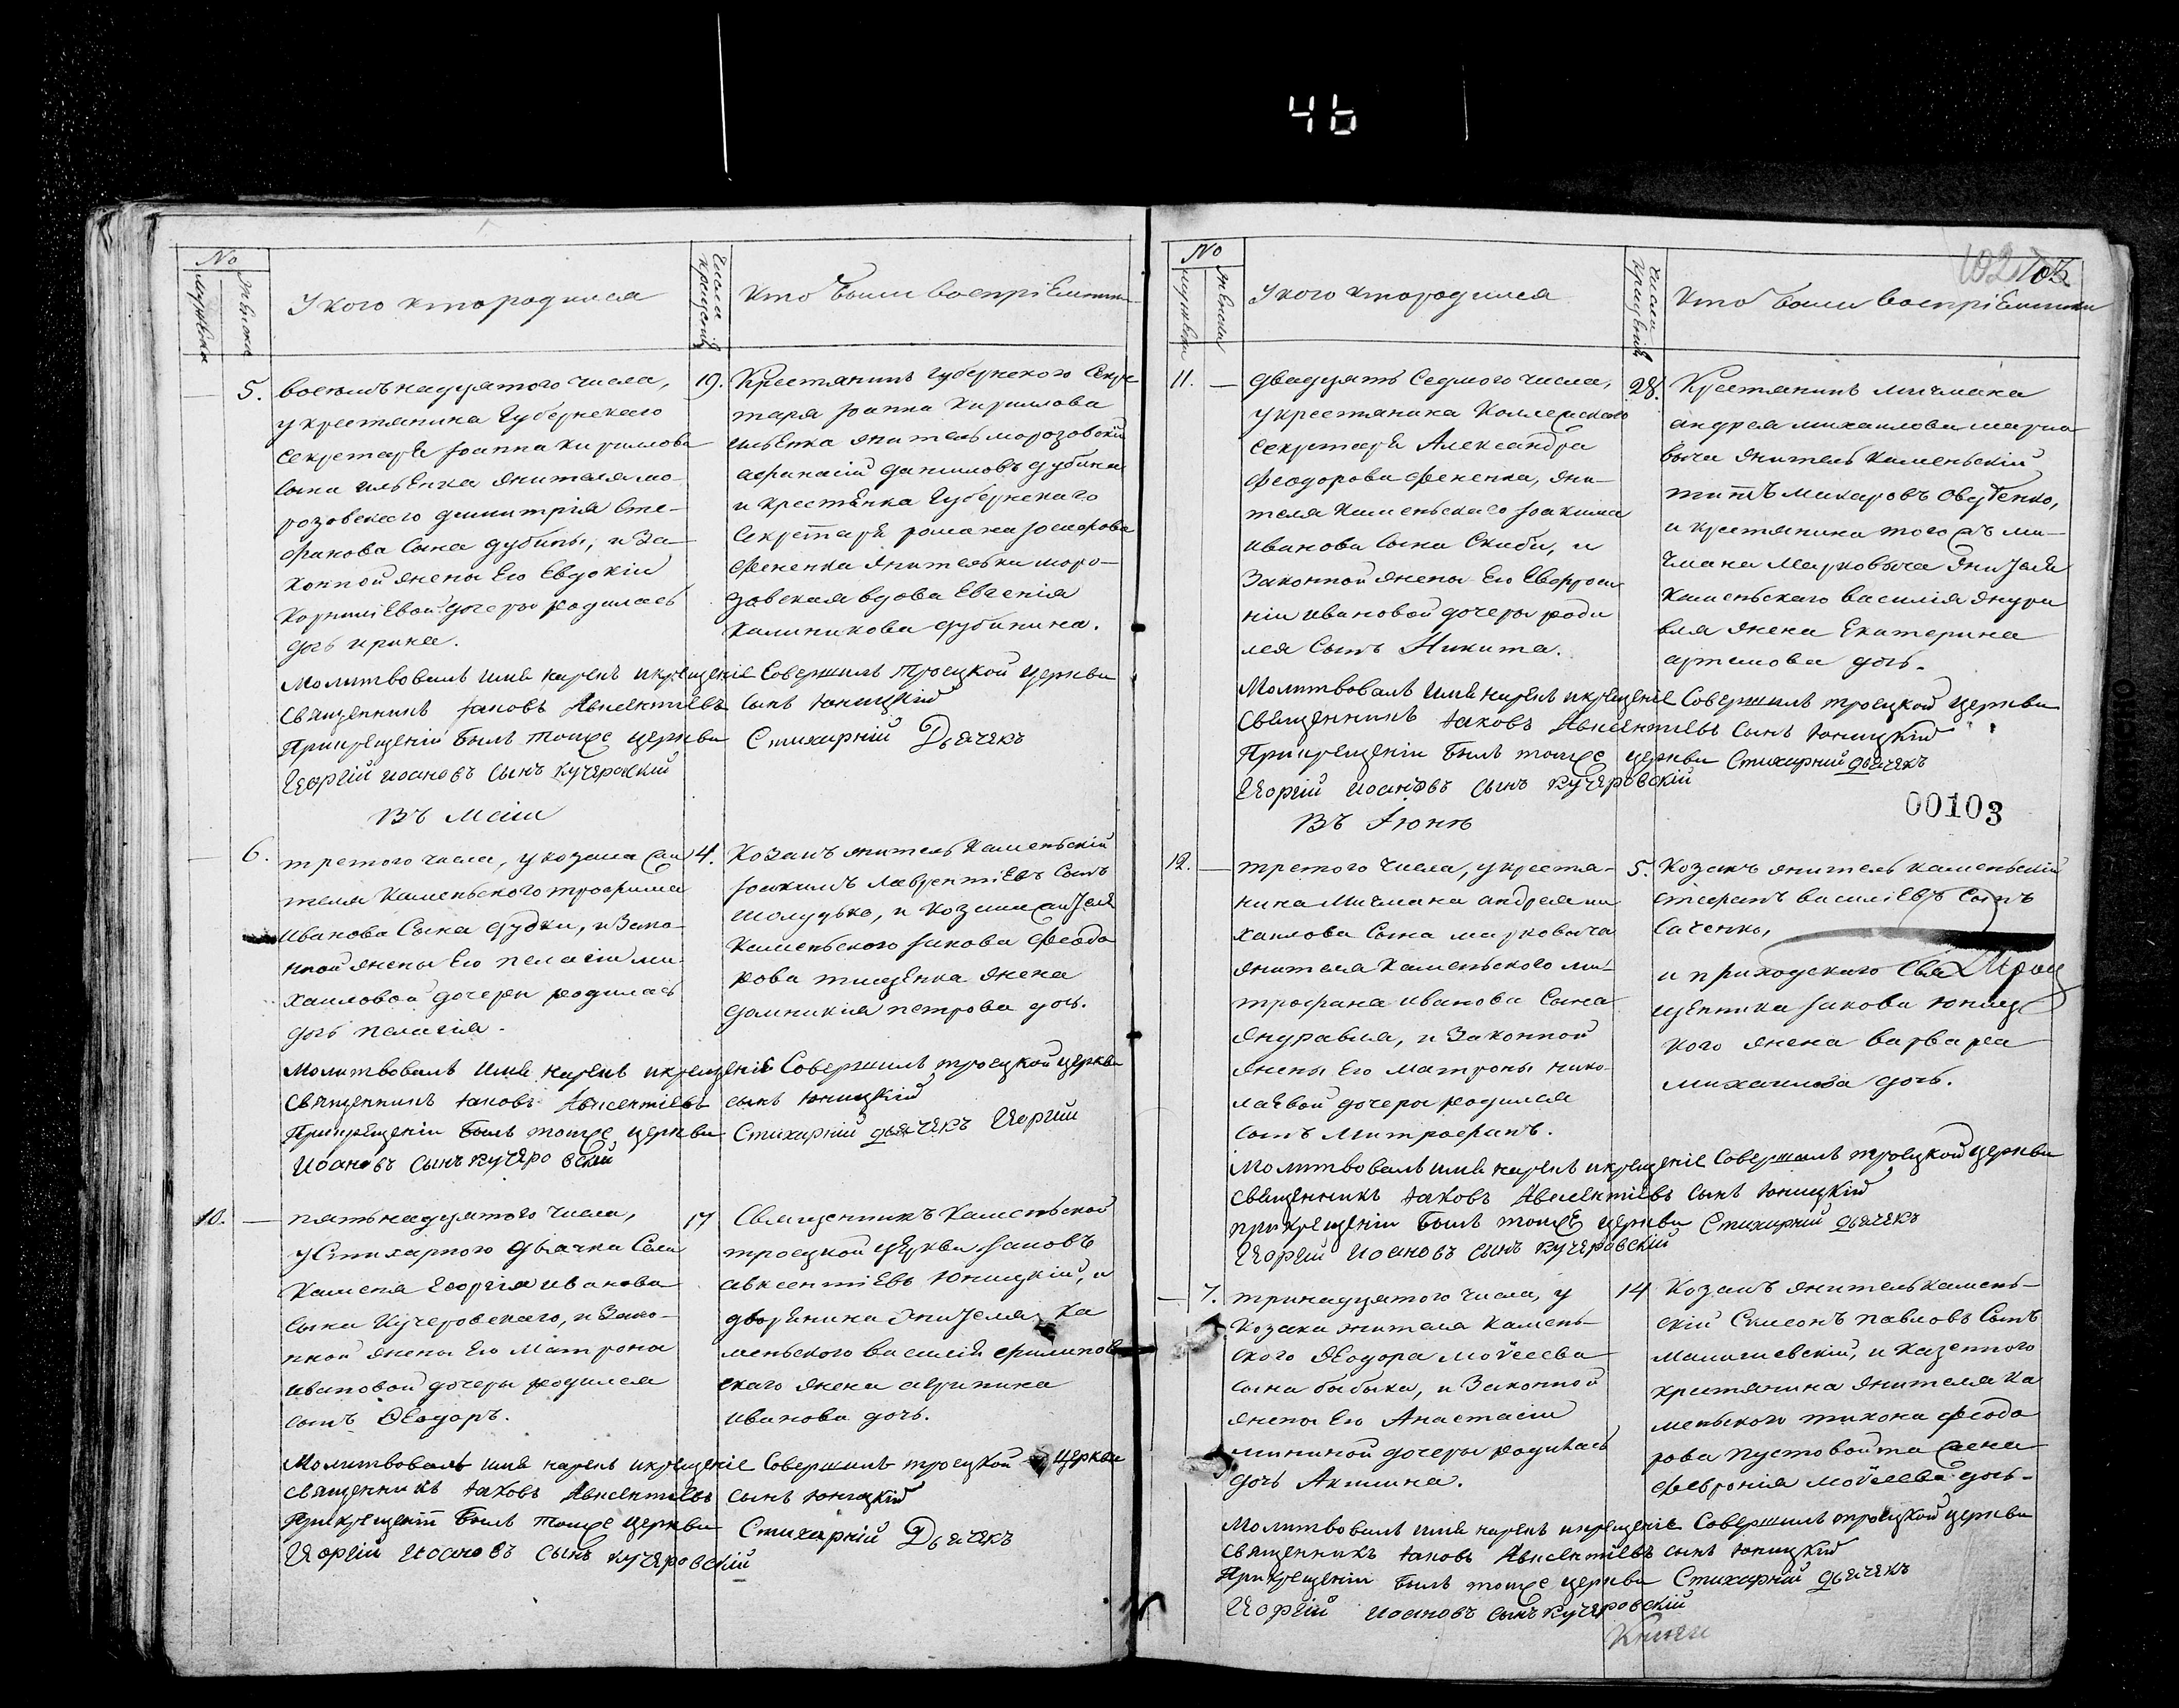 46
No
мужеска
женска
У кого кто родился
Числа
крещенія
Кто были воспріемники
5.
восемьнадцятого числа,
у крестянина Губернскаго
Секретаря Іоанна Кирилова
сына Ильенка жителя мо-
розовского димитрія Сте-
фанова Сына дубины, и За-
конной жены Его Евдокіи
Корниліевой дочеры родилась
дочь ирина.
19.
Крестянинъ Губернского Секре
таря Іоанна Кирилова
ильенка житель морозовскій
афанасій даниловъ дубина
и крестянка Губернскаго
Секретаря романа Іосифова
фененка жителька моро-
зовская вдова Евгенія
Калиникова дубинина.
Молитвовалъ имя нарекъ и крещеніе Совершилъ Троецкой церкви
Священникъ Іаковъ Авксентіевъ сынъ Юницкій
При крещеніи былъ тоиже церкви Стихарній Дьячекъ
Георгій Иоановъ сынъ Кучеровскій
Въ Маіи
6.
третого числа, у козака жи
теля Каменьского трофима
Иванова Сына дудки, и Зако-
нной жены Его пелагіи ми-
хаиловой дочеры родилась
дочь пелагія.
4.
Козакъ житель Каменьскій
Іоакимъ лаврентіевъ Сынъ
шолудько, и козака жителя
Каменьского Іакова феодо
рова тищенка жена
домникія петрова дочь.
Молитвовалъ имя нарекъ и крещеніе Совершилъ троецкой церкви
Священникъ Іаковъ Авксентіевъ сынъ Юницкій
При крещеніи былъ тоиже церкви Стихарній дьячекъ Георгій
Иоановъ сынъ Кучеровскій
10.
пятьнадцятого числа,
у Стихарного дьячка Села
Каменя Георгія иванова
сына Кучеровского, и Зако-
нной жены Его Матроны
ивановой дочеры родился
сынъ Феодоръ.
17
Священникъ Каменьской
троецкой церкви Іаковъ
авксентіевъ Юницкій, и
дворянина жителя Ка
меньского василія филипов
скаго жена агрипина
иванова дочь.
Молитвовалъ имя нарекъ и крещеніе Совершилъ троецкой церкви
Священникъ Іаковъ Авксентіевъ сынъ Юницкій
При крещеніи былъ тоиже церкви Стихарній Дьячекъ
Георгій Иоановъ сынъ Кучеровскій
102
103
No
мужеска
женска
У кого кто родился
Числа
крещенія
Кто были воспріемники
11.
двадцять седмого числа,
у крестянина Коллежского
секретаря Александра
Феодорова фененка, жи-
теля Каменьскаго Іоакима
Иванова Сына Скибы, и
Законной жены Его Евфроси
ніи Ивановой дочеры роди
лся Сынъ Никита.
28.
Крестянинъ Мичмана
андрея михаилова марко
выча житель Каменьскій
титъ макаровъ Овдіенко,
и крестянина того жъ ми-
чмана Марковыча жителя
Каменьскаго василія жура
вля жена Екатерина
артемова дочь.
Молитвовалъ имя нарекъ и крещеніе Совершилъ троецкой церкви
Священникъ Іаковъ Авксентіевъ Сынъ Юницкій
При крещеніи былъ тоиже церкви Стихарній дьячекъ
Георгій Иоановъ сынъ Кучеровскій
00103
Въ Іюнѣ
12.
третого числа, у крестя-
нина Мичмана андрея ми
хаилова Сына марковыча
жителя Каменьского ми-
трофана иванова Сына
журавля, и Законной
жены Его Матроны нико-
лаевой дочеры родился
сынъ Митрофанъ.
5.
Козакъ житель каменьскій
стефанъ василіевъ Сынъ
Саченко,
и приходскаго Свя
щенника Іакова Юниц
кого жена варвара
михаилова дочь.
Молитвовалъ имя нарекъ и крещеніе Совершилъ троецкой церкви
Священникъ Іаковъ Авксентіевъ сынъ Юницкій
при крещеніи былъ тоиже церкви Стихарній дьячекъ
Георгій Иоановъ сынъ Кучеровскій
7.
тринадцятого числа, у
Козака жителя Камень-
ского Феодора Моѵсеева
сына быбыка, и Законной
жены Его Анастасіи
мининой дочеры родилась
дочь Акилина.
14
Козакъ житель камень-
скій Симеонъ павловъ Сынъ
, и казенного
крестянина жителя Ка
меньского тихона феодо
рова пустовойта жена
феврония моѵсеева дочь.
Молитвовалъ имя нарекъ и крещеніе Совершилъ троецкой церкви
Священникъ Іаковъ Авксентіевъ сынъ Юницкій
При крещеніи былъ тоиже церкви Стихарній дьячекъ
Георгій Иоановъ сынъ Кучеровскій
Книги